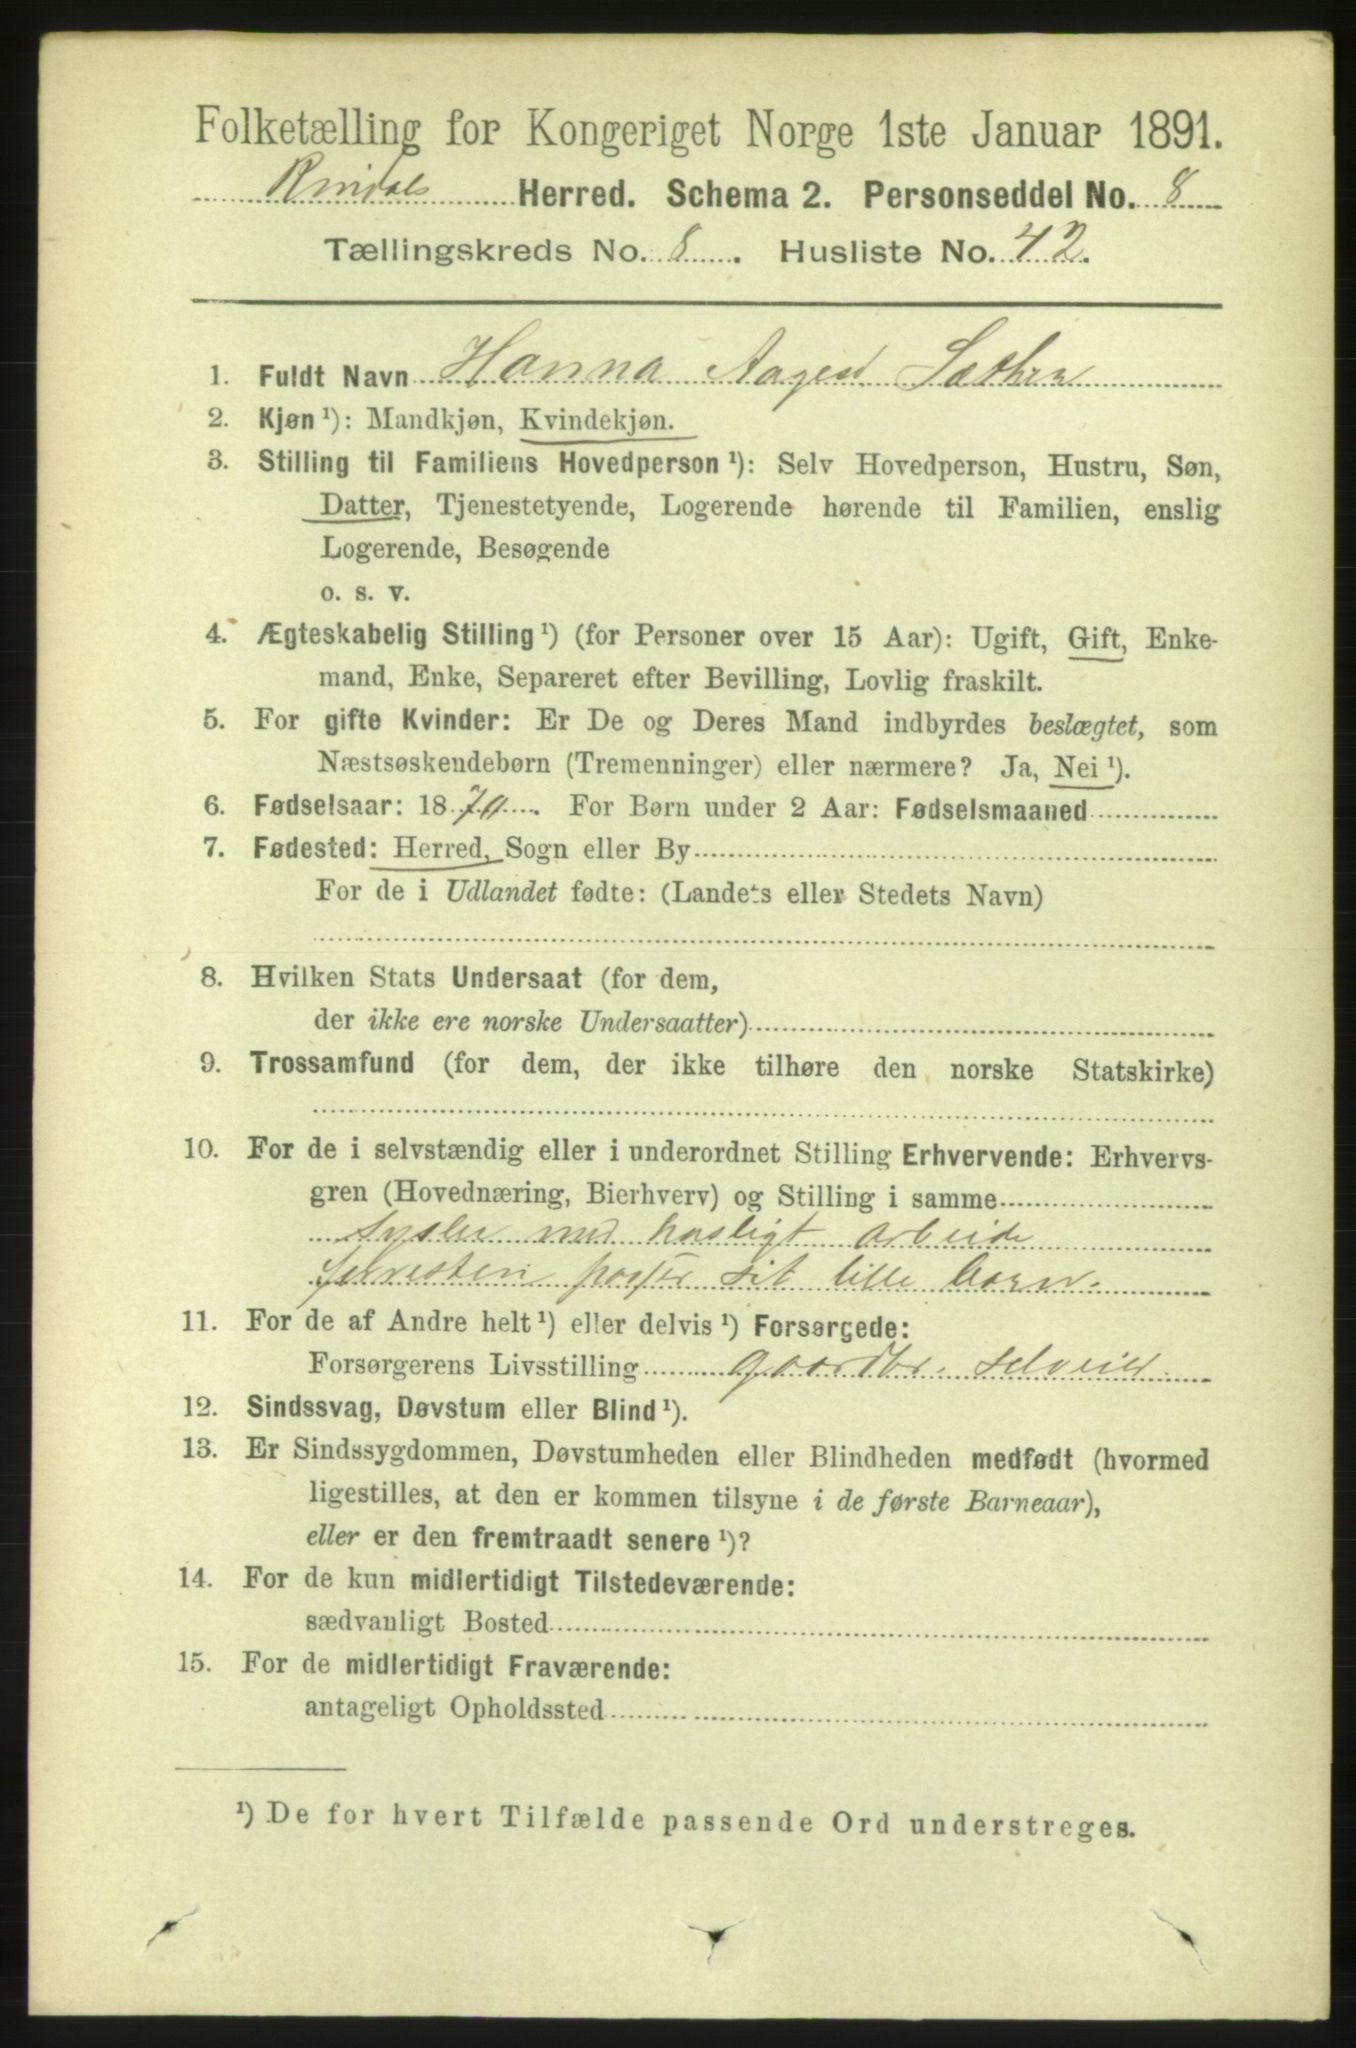 Folketælling for Kongeriget Norge 1ste Januar 1891.
Rindals Herred. Schema 2. Personseddel No. 8
Tællingskreds No. 8. Husliste No. 42.
1. Fuldt Navn Hanna Aagesd Sæther
2. Kjøn ¹): Mandkjøn, Kvindekjøn.
3. Stilling til Familiens Hovedperson ¹): Selv Hovedperson, Hustru, Søn,
Datter, Tjenestetyende, Logerende hørende til Familien, enslig
Logerende, Besøgende
o. s. v.
4. Ægteskabelig Stilling ¹) (for Personer over 15 Aar): Ugift, Gift, Enke-
mand, Enke, Separeret efter Bevilling, Lovlig fraskilt.
5. For gifte Kvinder: Er De og Deres Mand indbyrdes beslægtet, som
Næstsøskendebørn (Tremenninger) eller nærmere? Ja, Nei ¹).
6. Fødselsaar: 1870. For Børn under 2 Aar: Fødselsmaaned
7. Fødested: Herred, Sogn eller By
For de i Udlandet fødte: (Landets eller Stedets Navn)
8. Hvilken Stats Undersaat (for dem,
der ikke ere norske Undersaatter)
9. Trossamfund (for dem, der ikke tilhøre den norske Statskirke)
10. For de i selvstændig eller i underordnet Stilling Erhvervende: Erhvervs-
gren (Hovednæring, Bierhverv) og Stilling i samme
Sysler med husligt arbeide
forresten passer sit lille barn.
11. For de af Andre helt ¹) eller delvis ¹) Forsørgede:
Forsørgerens Livsstilling gaardbr. selveier
12. Sindssvag, Døvstum eller Blind ¹).
13. Er Sindssygdommen, Døvstumheden eller Blindheden medfødt (hvormed
ligestilles, at den er kommen tilsyne i de første Barneaar),
eller er den fremtraadt senere ¹)?
14. For de kun midlertidigt Tilstedeværende:
sædvanligt Bosted
15. For de midlertidigt Fraværende:
antageligt Opholdssted
¹) De for hvert Tilfælde passende Ord understreges.